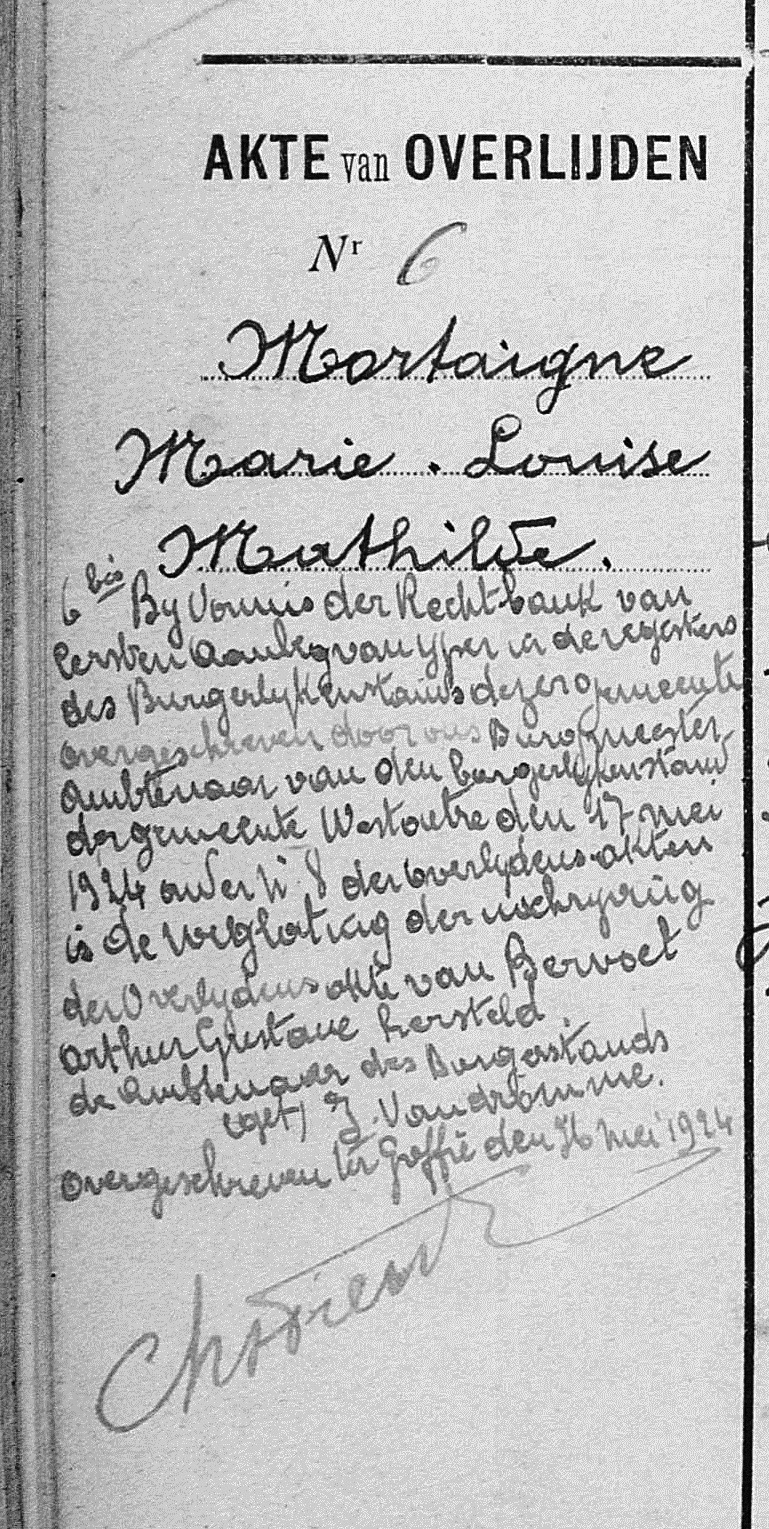 AKTE van OVERLIJDEN
Nr 6
Mortaigne
Marie - Louise
Mathilde.
6 bis By Vonnis der Rechtbank van
Eersten Aanleg van Yper in de registers
des Burgerlykenstands dezer gemeente
overgeschreven door ons Burgmeester
Ambtenaar van den burgerlykenstand
der gemeente Westoutre den 17 mei
1924 onder Nr 8 der overlydens akten
is de weglating der
der Overlydens akte van Bervoet
Arthur Gustave hersteld.
de Ambtenaar des Burgerstands
(get) J. Vandromme.
overgeschreven ter Griffie den 26 mei 1924